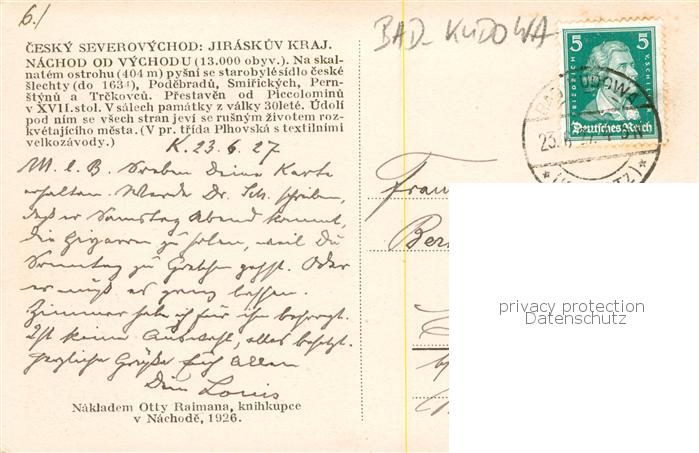 6./
BAD-KUDOWA
ČESKÝ SEVEROVÝCHOD: JIRÁSKŮV KRAJ.
NÁCHOD OD VÝCHODU (13.000 obyv.). Na skal-
natém ostrohu (404 m) pyšní se starobylé sídlo české
šlechty (do 1634), Poděbradů, Smiřických, Pern-
štýnů a Trčkovců. Přestavěn od Piccolominiů
v XVII. stol. V sálech památky z války 30leté. Údolí
pod ním se všech stran jeví se rušným životem roz-
kvétajícího města. (V pr. třída Plhovská s textilními
velkozávody.)
K. 23.6.27
M. l. B. Soeben Deine Karte
erhalten. Werde Dr. Sch. schreiben,
daß er Samstag Abend kommt,
die Zigarren zu holen, weil Du
Sonntag zu Gretchen gehst. Oder
er muß es ganz lassen.
Zimmer habe ich für ihn besorgt.
Ist keine Auswahl, alles besetzt.
Herzliche Grüße Euch Allen
Dein Louis
Nákladem Otty Raimana, knihkupce
v Náchodě, 1926.
5 5
FRIEDRICH V. SCHILLER
Deutsches Reich
BAD KUDOWA
23.6.27.
privacy protection
Datenschutz